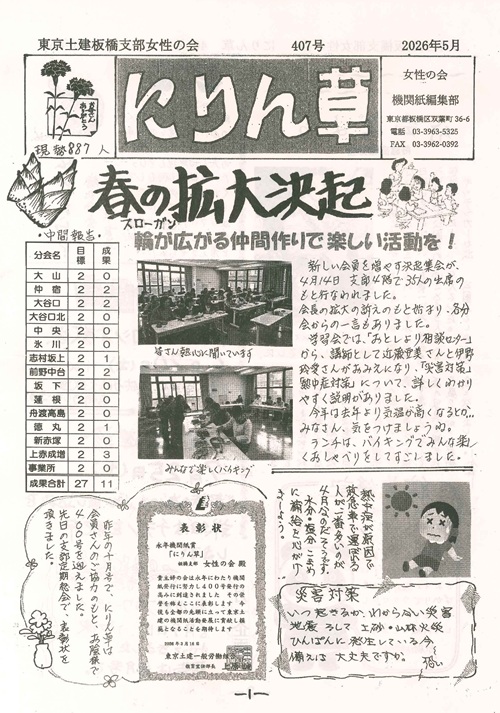 東京土建板橋支部女性の会
407号
2026年5月
お母さん
ありがとう
現勢887人
にりん草
女性の会
機関紙編集部
東京都板橋区双葉町36-6
電話 03-3963-5325
FAX 03-3962-0392
春の拡大決起
スローガン
輪が広がる仲間作りで楽しい活動を!
・中間報告・
分会名 目標 成果
大山 2 0
仲宿 2 2
大谷口 2 2
大谷口北 2 0
中央 2 0
氷川 2 0
志村坂上 2 1
前野中台 2 2
坂下 2 0
蓮根 2 0
舟渡高島 2 0
徳丸 2 1
新赤塚 2 0
上赤成増 2 3
事業所 2 0
成果合計 27 11
皆さん熱心に聞いています
みんなで楽しくバイキング
新しい会員を増やす決起集会が、
4月14日 支部4階で35人の出席の
もと行なわれました。
会長の拡大の訴えのもと始まり、各分
会からの一言もありました。
学習会では、「おとしより相談センター」
から、講師として近藤亜美さんと伊野
玲愛さんがあみえになり、「災害対策」
「熱中症対策」について、詳しくわかり
やすく説明がありました。
今年は去年より気温が高くなるとの…
みなさん、気をつけましょうね。
ランチは、バイキングでみんな楽し
くおしゃべりをしてすごしました。
熱中症が原因で
救急車で運ばれる
人が一番多いのが
4月なのだそうです。
水分・塩分 こまめ
に補給を心がけ
ましょう。
災害対策
いつ起きるか、わからない災害
地震 そして 土砂・山林火災
ひんぱんに発生している今、
備えは 大丈夫ですか。
表彰状
永年機関紙賞
「にりん草」
板橋支部 女性の会 殿
貴主婦の会は永年にわたり機関
紙発行に努力し400号発行の
高みに到達されました その栄
誉を称えここに表彰します 今
後も全都の先頭に立って東京土
建の機関紙活動発展に貢献し模
範となることを期待します
東京土建一般労働組合
教育宣伝部長
昨年の十月号で、にりん草は
400号を迎えました。
会員さんのご協力のもと、お陰様で
先日の支部定期総会で、表彰状を
頂きました。
―1―